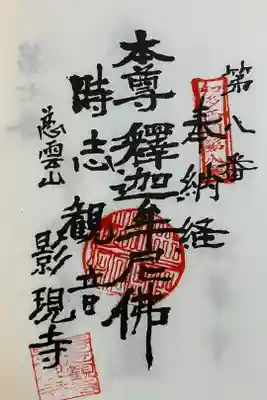 第八番
奉納経
本尊釋迦牟尼佛
時志観音
慈雲山
影現寺